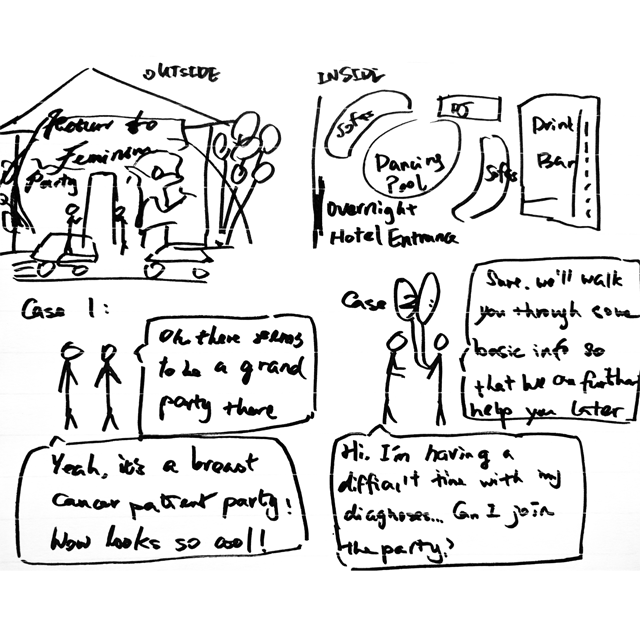 OUTSIDE
Return to
Feminism
Party
INSIDE
Sofas
DJ
Dancing
Pool
Sofas
Drink
Bar
Overnight
Hotel Entrance
Case 1:
Oh there seems
to be a grand
party there
Yeah, it's a breast
cancer patient party!
Wow looks so cool!
Case 2:
Sure. we'll walk
you through some
basic info so
that we can further
help you later
Hi. I'm having a
difficult time with my
diagnoses... Can I join
the party?